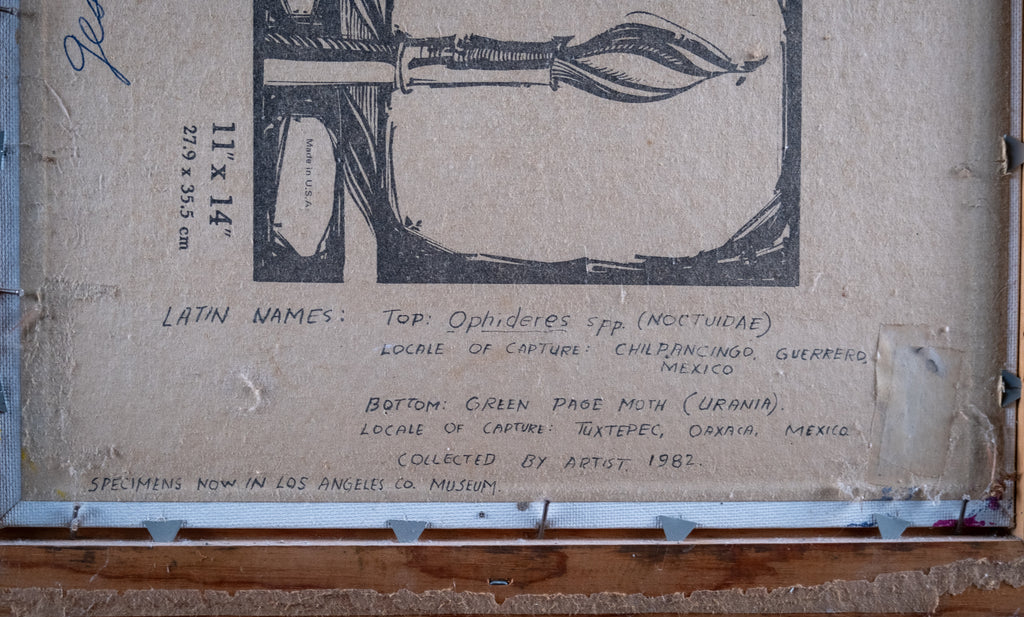 11" x 14"
27.9 x 35.5 cm
Made in U.S.A.
LATIN NAMES: TOP: Ophideres spp. (NOCTUIDAE)
LOCALE OF CAPTURE: CHILPANCINGO, GUERRERO,
MEXICO
BOTTOM: GREEN PAGE MOTH (URANIA).
LOCALE OF CAPTURE: TUXTEPEC, OAXACA, MEXICO
COLLECTED BY ARTIST, 1982.
SPECIMENS NOW IN LOS ANGELES CO. MUSEUM.